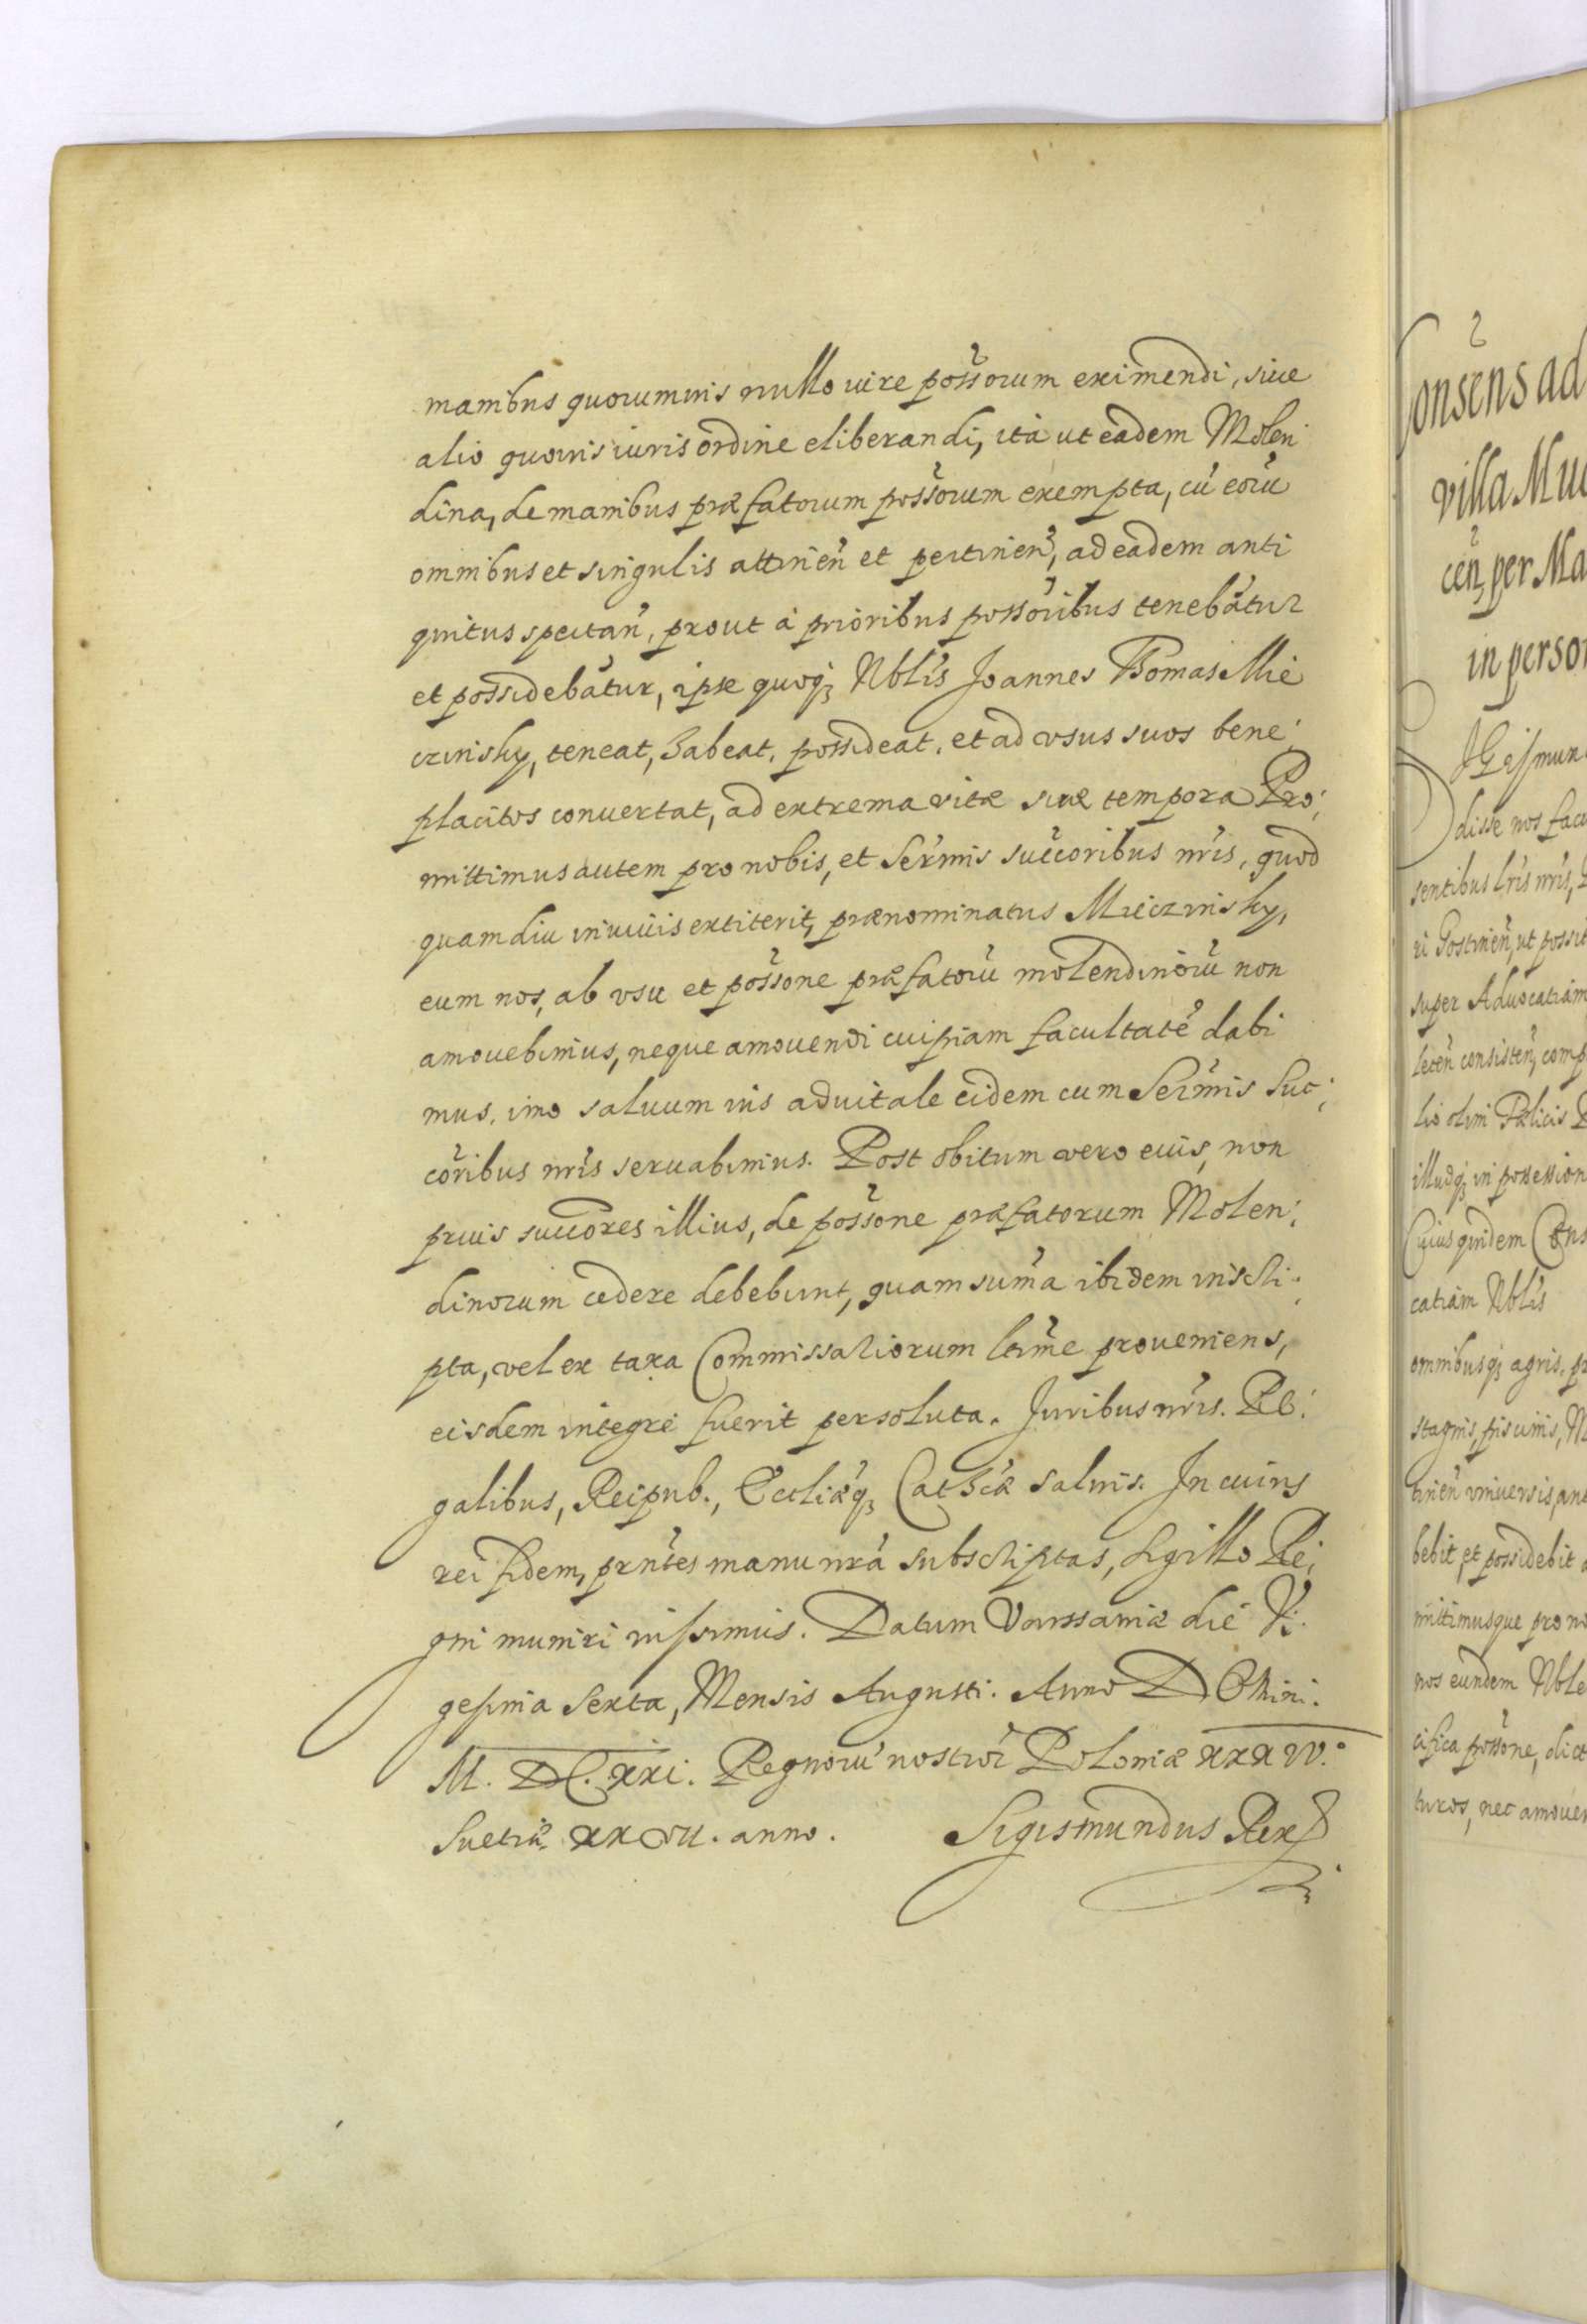 manibus quorumuis nullo iure possorum eximendi, siue
alio quouis iuris ordine eliberandi, ità ut eadem Molen
dina, de manibus præfatorum possorum exempta, cũ eorũ
omnibus et singulis attinen̄ et pertinen̄, ad eadem anti
quitus spectan̄, prout à prioribus possoribus tenebãtur
et possidebãtur, ipse quoq3 Nblis Joannes Thomas Mie
czinsky, teneat, habeat, possideat, et ad vsus suos bene
placitos conuertat, ad extrema vitæ suæ tempora Pro:
mittimus autem pro nobis, et Sermis succoribus nris, quod
quamdiu in viuis extiterit, prænominatus Mieczinsky,
eum nos, ab vsu et possone præfatorũ molendinorũ non
amouebimus, neque amouendi cuipiam facultatẽ dabi
mus, imo saluum ius aduitale eidem cum Sermis Suc:
coribus nris seruabimus. Post obitum vero eius, non
prius succores illius, de possone præfatorum Molen:
dinorum cedere debebunt, quam suma ibidem inscri:
pta, vel ex taxa Commissariorum ltime proueniens,
eisdem integrè fuerit persoluta. Juribus nris. Re:
galibus, Reipub., Eccliæq3 Cathcæ saluis. In cuius
rei fidem, prntes manu nrã subscriptas, Sigillo Re:
gni muniri iussimus. Datum Varssauiæ die Vi:
gesima Sexta, Mensis Augusti. Anno Domini.
M. DC. xxi. Regnorũ nostror Poloniæ xxxiv.°
Suetiæ xxviii. anno. Sigismundus Rex
onsens ad
villa Mu
cen̄, per Ma
in person
IGismun
disse nos facu
sentibus lris nris,
ri Gostinen̄, ut possit
super Aduocatiam
leten̄ consisten̄, comp
lio olim Felicis
illudq3 in possession
Cuius quidem Cons
catiam Nblis
omnibusq3 agris, pr
stagnis, piscinis, M
tinen̄ vniuersis, ant
bebit, et possidebit
mittimusque pro no
nos eundem Nble
cifica possone, dict
turos, nec amouen